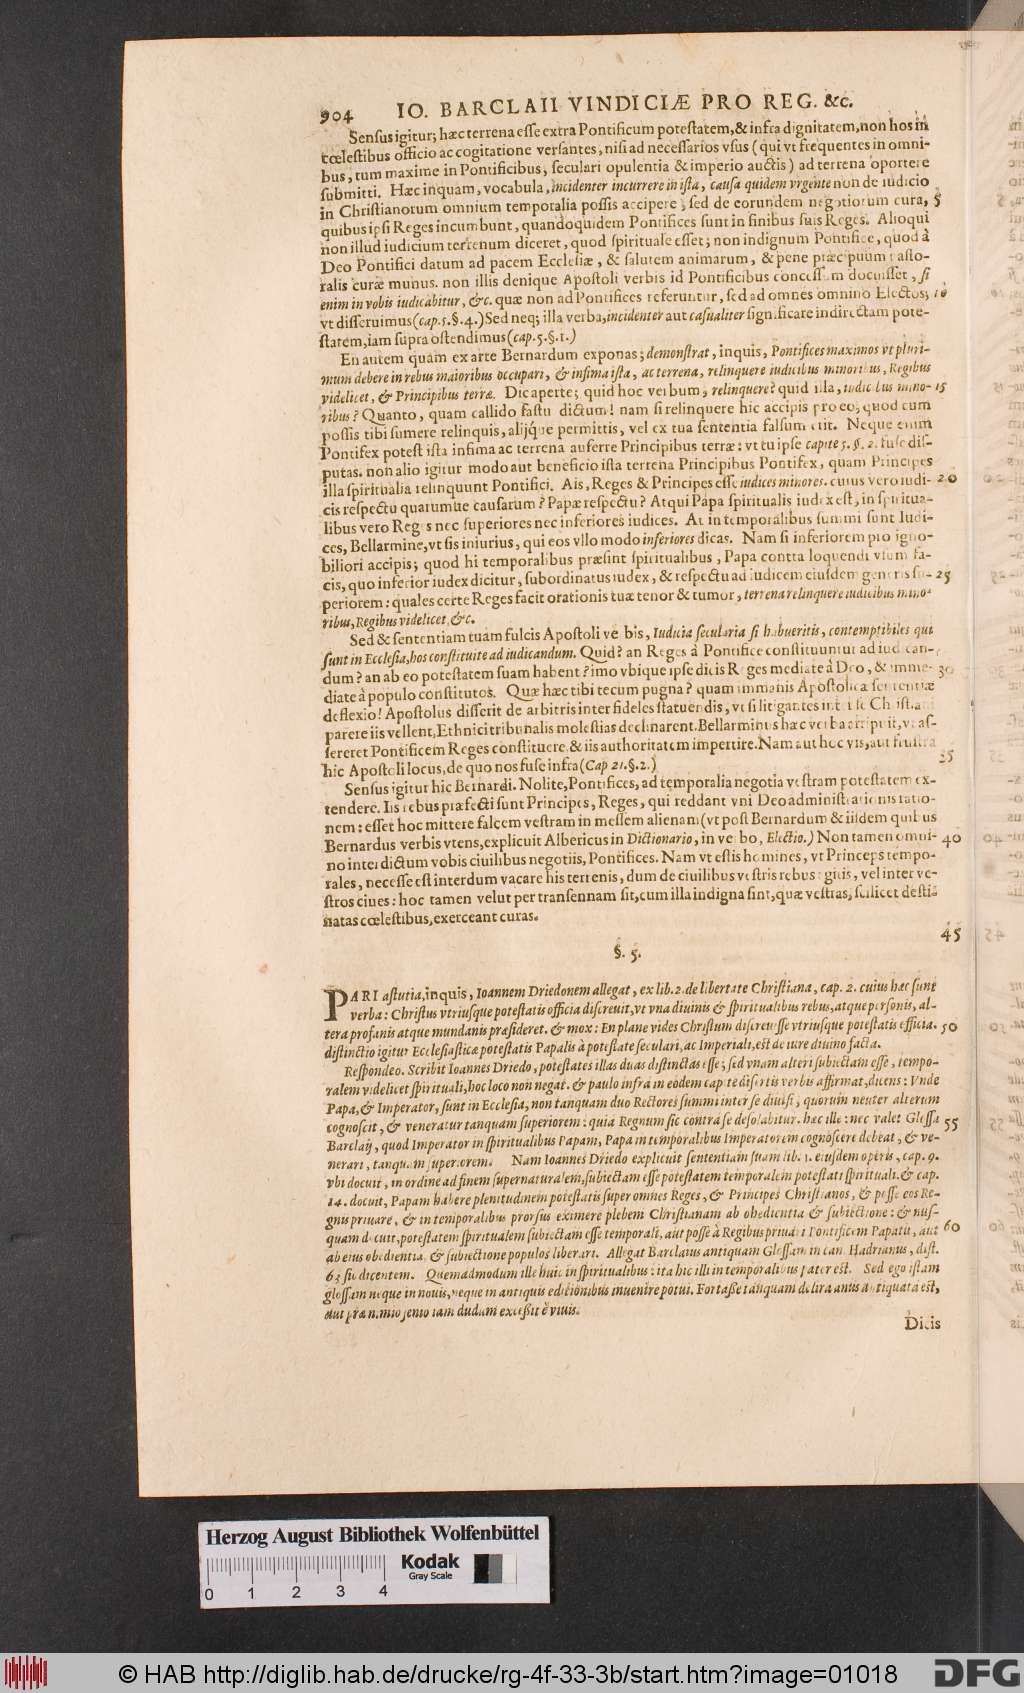 904 IO. BARCLAII VINDICIÆ PRO REG. &c.
Sensus igitur; hæc terrena esse extra Pontificum potestatem, & infra dignitatem, non hos in
cœlestibus officio ac cogitatione versantes, nisi ad necessarios vsus (qui vt frequentes in omni-
bus, tum maxime in Pontificibus, seculari opulentia & imperio auctis) ad terrena oportere
submitti. Hæc inquam, vocabula, incidenter incurrere in ista, causa quidem vrgente non de iudicio
in Christianorum omnium temporalia possis accipere; sed de eorundem negotiorum cura, 5
quibus ipsi Reges incumbunt, quandoquidem Pontifices sunt in finibus suis Reges. Alioqui
non illud iudicium terrenum diceret, quod spirituale esset; non indignum Pontifice, quod à
Deo Pontifici datum ad pacem Ecclesiæ, & salutem animarum, & pene præcipuum pasto-
ralis curæ munus. non illis denique Apostoli verbis id Pontificibus concessum docuisset, si
enim in vobis iudicabitur, &c. quæ non ad Pontifices referuntur, sed ad omnes omnino Electos; 10
vt disseruimus (cap. 5. §. 4.) Sed neq; illa verba, incidenter aut casualiter significare indirectam pote-
statem, iam supra ostendimus (cap. 5. §. 1.)
En autem quàm ex arte Bernardum exponas; demonstrat, inquis, Pontifices maximos vt pluri-
mum debere in rebus maioribus occupari, & infima ista, ac terrena, relinquere iudicibus minoribus, Regibus
videlicet, & Principibus terræ. Dic aperte; quid hoc verbum, relinquere? quid illa, iudicibus mino- 15
ribus? Quanto, quam callido fastu dictum! nam si relinquere hic accipis pro eo, quod cum
possis tibi sumere relinquis, alijque permittis, vel ex tua sententia falsum erit. Neque enim
Pontifex potest ista infima ac terrena auferre Principibus terræ: vt tu ipse capite 5. §. 2. fuse dis-
putas. non alio igitur modo aut beneficio ista terrena Principibus Pontifex, quam Principes
illa spiritualia relinquunt Pontifici. Ais, Reges & Principes esse iudices minores. cuius vero iudi- 20
cis respectu quarumue causarum? Papæ respectu? Atqui Papa spiritualis iudex est, in spiritua-
libus vero Reges nec superiores nec inferiores iudices. At in temporalibus summi sunt Iudi-
ces, Bellarmine, vt sis iniurius, qui eos vllo modo inferiores dicas. Nam si inferiorem pro igno-
biliori accipis; quod hi temporalibus præsint spiritualibus, Papa contra loquendi vsum fa-
cis, quo inferior iudex dicitur, subordinatus iudex, & respectu ad iudicem eiusdem generis su- 25
periorem: quales certe Reges facit orationis tuæ tenor & tumor, terrena relinquere iudicibus mino-
ribus, Regibus videlicet, &c.
Sed & sententiam tuam fulcis Apostoli verbis, Iudicia secularia si habueritis, contemptibiles qui
sunt in Ecclesia, hos constituite ad iudicandum. Quid? an Reges à Pontifice constituuntur ad iudican-
dum? an ab eo potestatem suam habent? imo vbique ipse dicis Reges mediate à Deo, & imme- 30
diate à populo constitutos. Quæ hæc tibi tecum pugna? quam immanis Apostolica sententiæ
deflexio! Apostolus disserit de arbitris inter fideles statuendis, vt si litigantes inter se Christiani
parere iis vellent, Ethnici tribunalis molestias declinarent. Bellarminus hæc verba arripuit, vt as-
sereret Pontificem Reges constituere, & iis authoritatem impertire. Nam aut hoc vis, aut frustra
hic Apostoli locus, de quo nos fuse infra (Cap 21. §. 2.) 35
Sensus igitur hic Bernardi. Nolite, Pontifices, ad temporalia negotia vestram potestatem ex-
tendere. Iis rebus præfecti sunt Principes, Reges, qui reddant vni Deo administrationis ratio-
nem: esset hoc mittere falcem vestram in messem alienam (vt post Bernardum & iisdem quibus
Bernardus verbis vtens, explicuit Albericus in Dictionario, in verbo, Electio.) Non tamen omni- 40
no interdictum vobis ciuilibus negotiis, Pontifices. Nam vt estis homines, vt Princeps tempo-
rales, necesse est interdum vacare his terrenis, dum de ciuilibus vestris rebus agitis, vel inter ve-
stros ciues: hoc tamen velut per transennam sit, cum illa indigna sint, quæ vestras, scilicet desti-
natas cœlestibus, exerceant curas.
45
§. 5.
PARI astutia, inquis, Ioannem Driedonem allegat, ex lib. 2. de libertate Christiana, cap. 2. cuius hæc sunt
verba: Christus vtriusque potestatis officia discreuit, vt vna diuinis & spiritualibus rebus, atque personis, al-
tera profanis atque mundanis præsideret. & mox: En plane vides Christum discreuisse vtriusque potestatis officia. 50
distinctio igitur Ecclesiasticæ potestatis Papalis à potestate seculari, ac Imperiali, est de iure diuino facta.
Respondeo. Scribit Ioannes Driedo, potestates illas duas distinctas esse; sed vnam alteri subiectam esse, tempo-
ralem videlicet spirituali, hoc loco non negat. & paulo infra in eodem capite disertis verbis affirmat, dicens: Vnde
Papa, & Imperator, sunt in Ecclesia, non tanquam duo Rectores summi inter se diuisi, quorum neuter alterum
cognoscit, & veneratur tanquam superiorem: quia Regnum sic contra se desolabitur. hæc ille: nec valet Glossa 55
Barclaij, quod Imperator in spiritualibus Papam, Papa in temporalibus Imperatorem cognoscere debeat, & ve-
nerari, tanquam superiorem. Nam Ioannes Driedo explicuit sententiam suam lib. 1. eiusdem operis, cap. 9.
vbi docuit, in ordine ad finem supernaturalem, subiectam esse potestatem temporalem potestati spirituali. & cap.
14. docuit, Papam habere plenitudinem potestatis super omnes Reges, & Principes Christianos, & posse eos Re-
gnis priuare, & in temporalibus prorsus eximere plebem Christianam ab obedientia & subiectione: & nus-
quam docuit, potestatem spiritualem subiectam esse temporali, aut posse à Regibus priuari Pontificem Papatu, aut 60
ab eius obedientia, & subiectione populos liberari. Allegat Barclaius antiquam Glossam in can. Hadrianus, dist.
63 sic dicentem. Quemadmodum ille huic in spiritualibus: ita hic illi in temporalibus pater est. Sed ego istam
glossam neque in nouis, neque in antiquis editionibus inuenire potui. Fortasse tanquam delira anus antiquata est,
aut præ nimio senio iam dudum excessit è viuis.
Dicis
Herzog August Bibliothek Wolfenbüttel
0 1 2 3 4
Kodak
Gray Scale
© HAB http://diglib.hab.de/drucke/rg-4f-33-3b/start.htm?image=01018
DFG